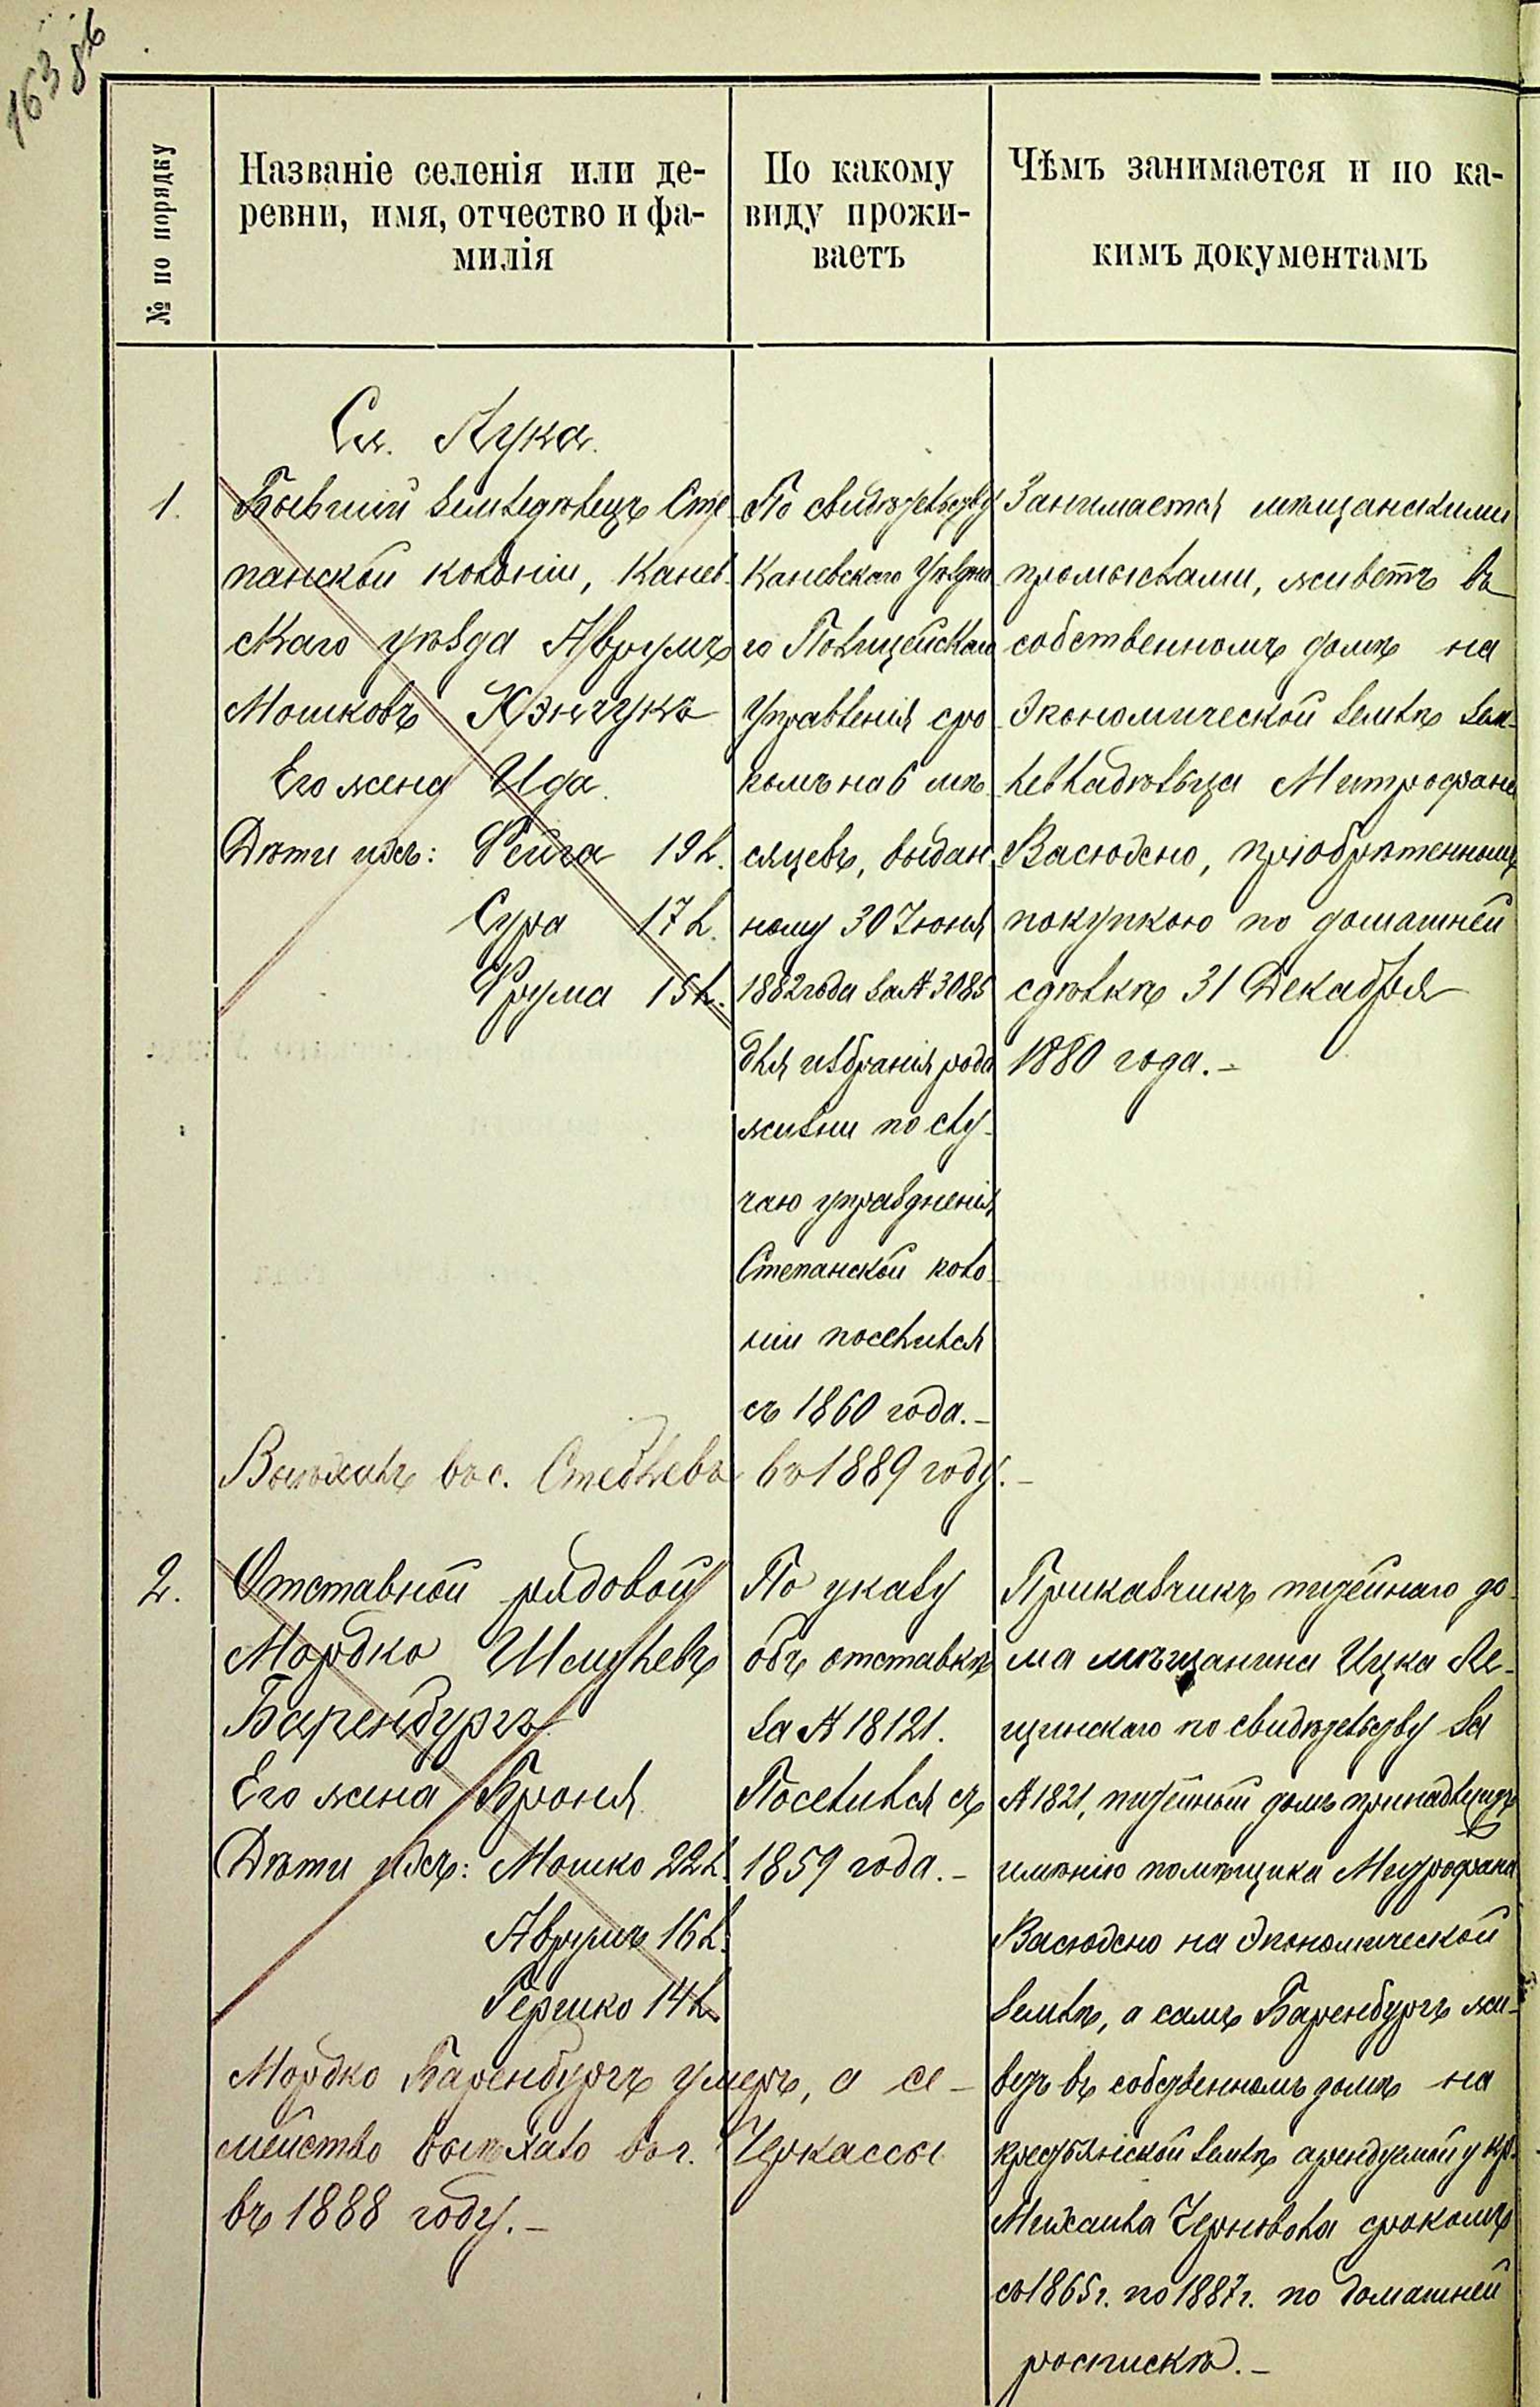 163 86
№ по порядку
Названіе селенія или де-
ревни, имя, отчество и фа-
милія
По какому
виду прожи-
ваетъ
Чѣмъ занимается и по ка-
кимъ документамъ
Сл. Лука.
1.
Бывшій земледѣлецъ Сте-
панской колоніи, Канев-
скаго уѣзда Аврумъ
Мошковъ Кэнчукъ
Его жена Ида.
Дѣти ихъ: Фейга 19 л.
Сура 17 л.
Фрума 15 л.
По свидѣтельству
Каневскаго Уѣздна-
го Полицейскаго
Управленія сро-
комъ на 6 мѣ-
сяцевъ, выдан-
ному 30 Іюня
1882 года за № 3085
для избранія рода
жизни по слу-
чаю упраздненія
Степанской коло-
ніи поселился
съ 1860 года.-
Занимается мѣщанскими
промыслами, живетъ въ
собственномъ домѣ на
Экономической землѣ зем-
левладѣльца Митрофана
Васюхно, пріобрѣтенному
покупкою по домашней
сдѣлкѣ 31 Декабря
1880 года.-
Выѣхалъ въ с. Стеблевъ въ 1889 году.-
2.
Отставной рядовой
Мордко Шмулевъ
Баренбургъ
Его жена Броня
Дѣти ихъ: Мошко 22 л.
Аврумъ 16 л.
Гершко 14 л.
По указу
объ отставкѣ
за № 18121.
Поселился съ
1859 года.-
Приказчикъ питейнаго до-
ма мѣщанина Ицка Ле-
щинскаго по свидѣтельству за
№ 1821, питейный домъ принадлежитъ
имѣнію помѣщика Митрофана
Васюхно на экономической
землѣ, а самъ Баренбургъ жи-
ветъ въ собственномъ домѣ на
крестьянской землѣ арендуемой у кр.
Михаила Черновола срокомъ
съ 1865 г. по 1887 г. по домашней
роспискѣ.-
Мордко Баренбургъ умеръ, а се-
мейство выѣхало въ г. Черкассы
въ 1888 году.-